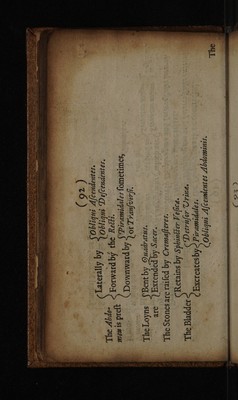 ( 92 )
Obliqui Ascendentes.
Laterally by
Obliqui Descendentes.
The Abdo-
men is prest
Forward by the Recti.
Downward by
Piramidales sometimes,
or Transversi.
The Loyns
are
Bent by Quadratus.
Extended by Sacer.
The Stones are raised by Cremasteres.
The Bladder
Retains by Sphincter Vesicæ.
Excreates by
Detrusor Urinæ.
Piramidales.
Obliqui Ascendentes Abdominis.
The